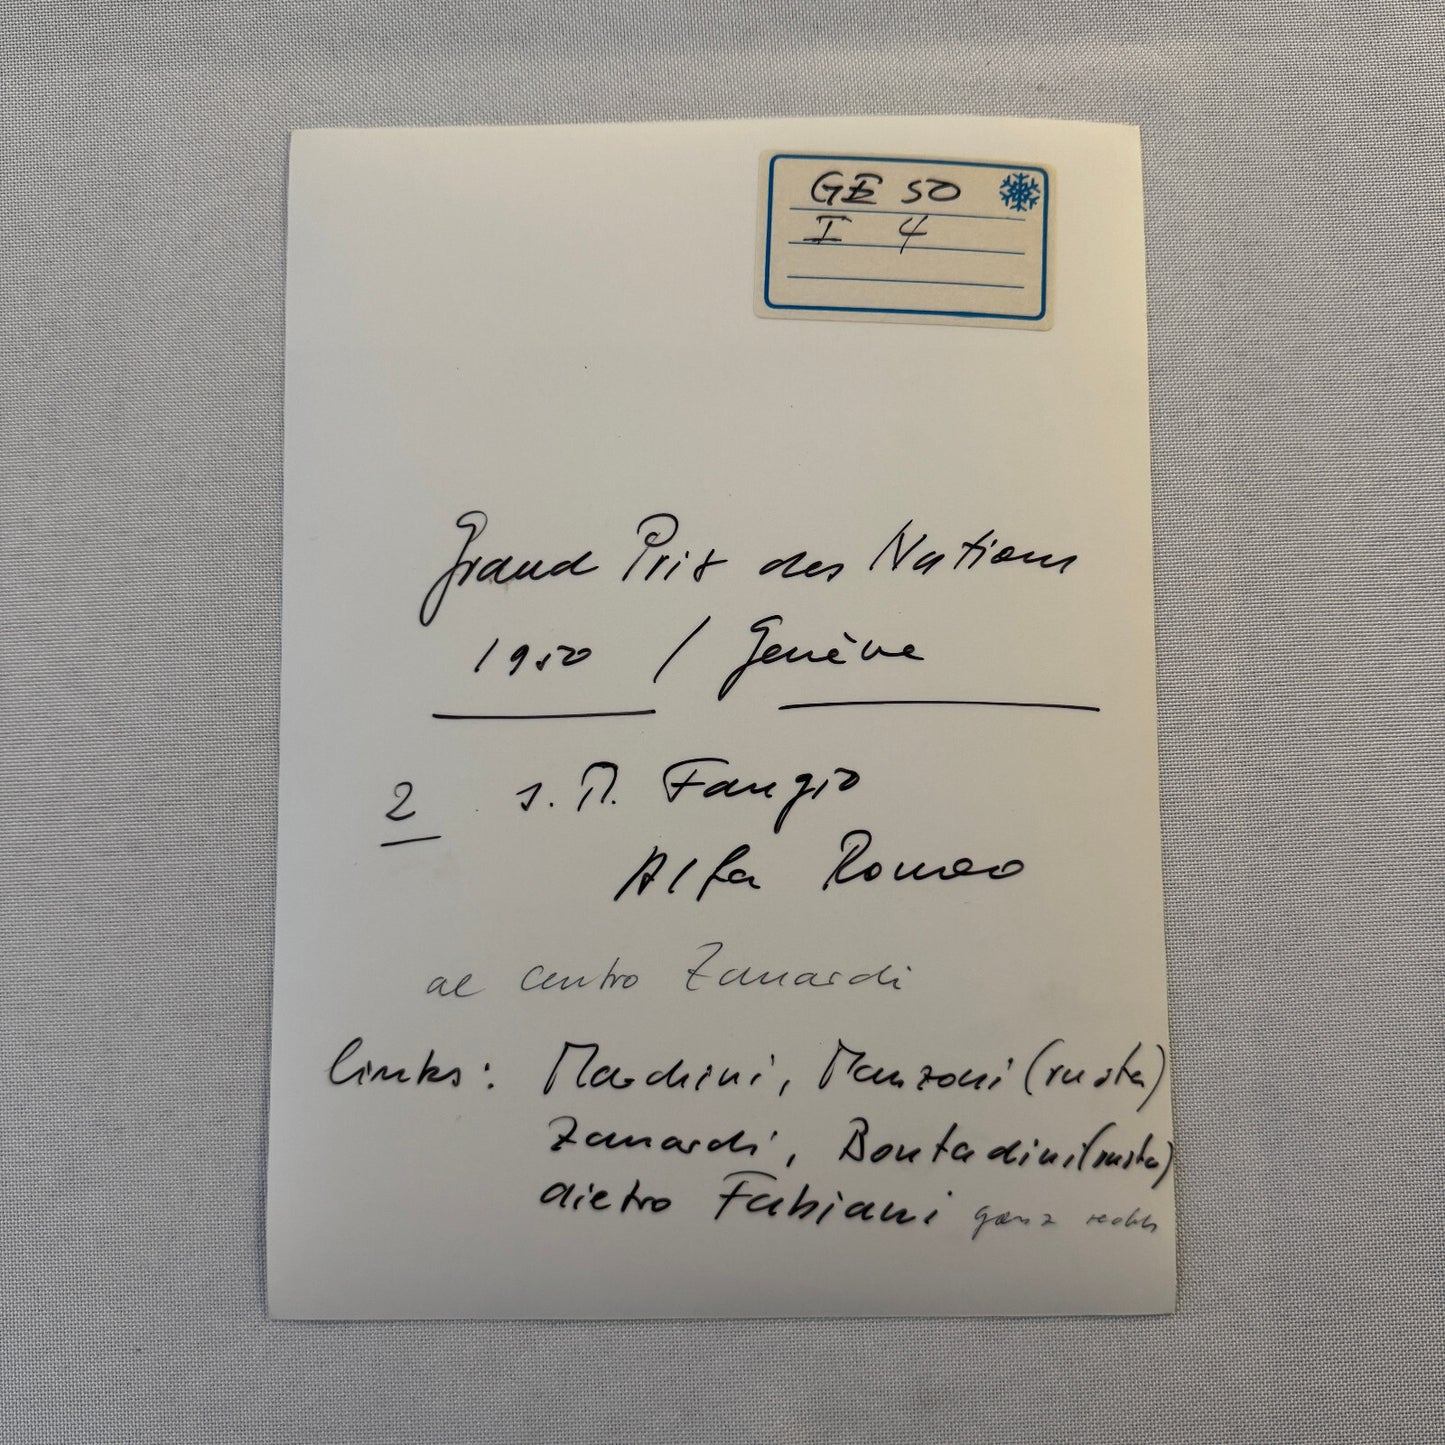 GE 50
I 4
Grand Prix des Nations
1950 / Genève
2 J. M. Fangio
Alfa Romeo
al centro Zanardi
links: Marchini, Manzoni (ruota)
Zanardi, Bontadini (ruota)
dietro Fabiani ganz rechts